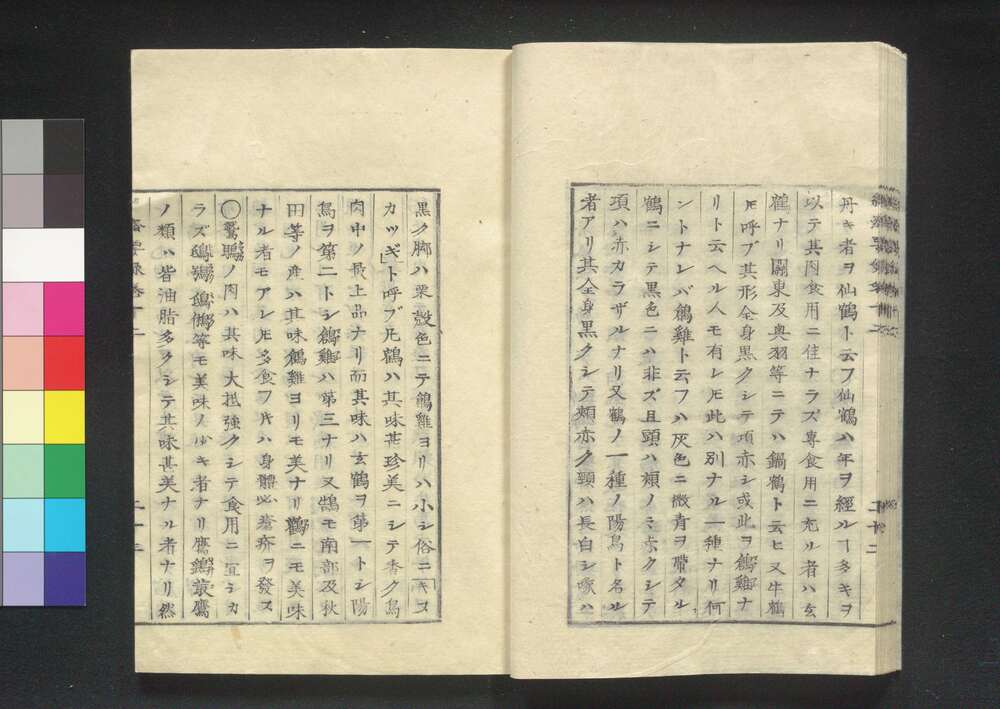 丹キ者ヲ仙鶴ト云フ仙鶴ハ年ヲ經ルヿ多キヲ
以テ其肉食用ニ佳ナラズ專食用ニ充ル者ハ玄
鶴ナリ關東及奥羽等ニテハ鍋鶴ト云ヒ又牛鶴
𪜈呼ブ其形全身黒クシテ項赤シ或此ヲ鶬雞ナ
リト云ヘル人モ有レ𪜈此ハ別ナル一種ナリ何
ントナレバ鶬雞ト云フハ灰色ニ微青ヲ帶タル
鶴ニシテ黒色ニハ非ズ且頭ハ頬ノミ赤クシテ
項ハ赤カラザルナリ又鶴ノ一種ノ陽鳥ト名ル
者アリ其全身黒クシテ頬赤ク頸ハ長白シ啄ハ
黒ク脚ハ栗殻色ニテ鶬雞ヨリハ小シ俗ニ「キス
カツギ」ト呼ブ凡鶴ハ其味甚珍美ニシテ香ク鳥
肉中ノ最上品ナリ而其味ハ玄鶴ヲ第一トシ陽
鳥ヲ第二トシ鶬雞ハ第三ナリ又鵠モ南部及秋
田等ノ産ハ其味鶬雞ヨリモ美ナリ鸛ニモ美味
ナル者モアレ𪜈多食フ片ハ身體必瘡疥ヲ發ス
〇鷲鵰ノ肉ハ其味大抵強クシテ食用ニ宜シカ
ラズ等モ美味ノ少キ者ナリ鷹鷹
ノ類ハ皆油脂多クシテ其味甚美ナル者ナリ然
二十二